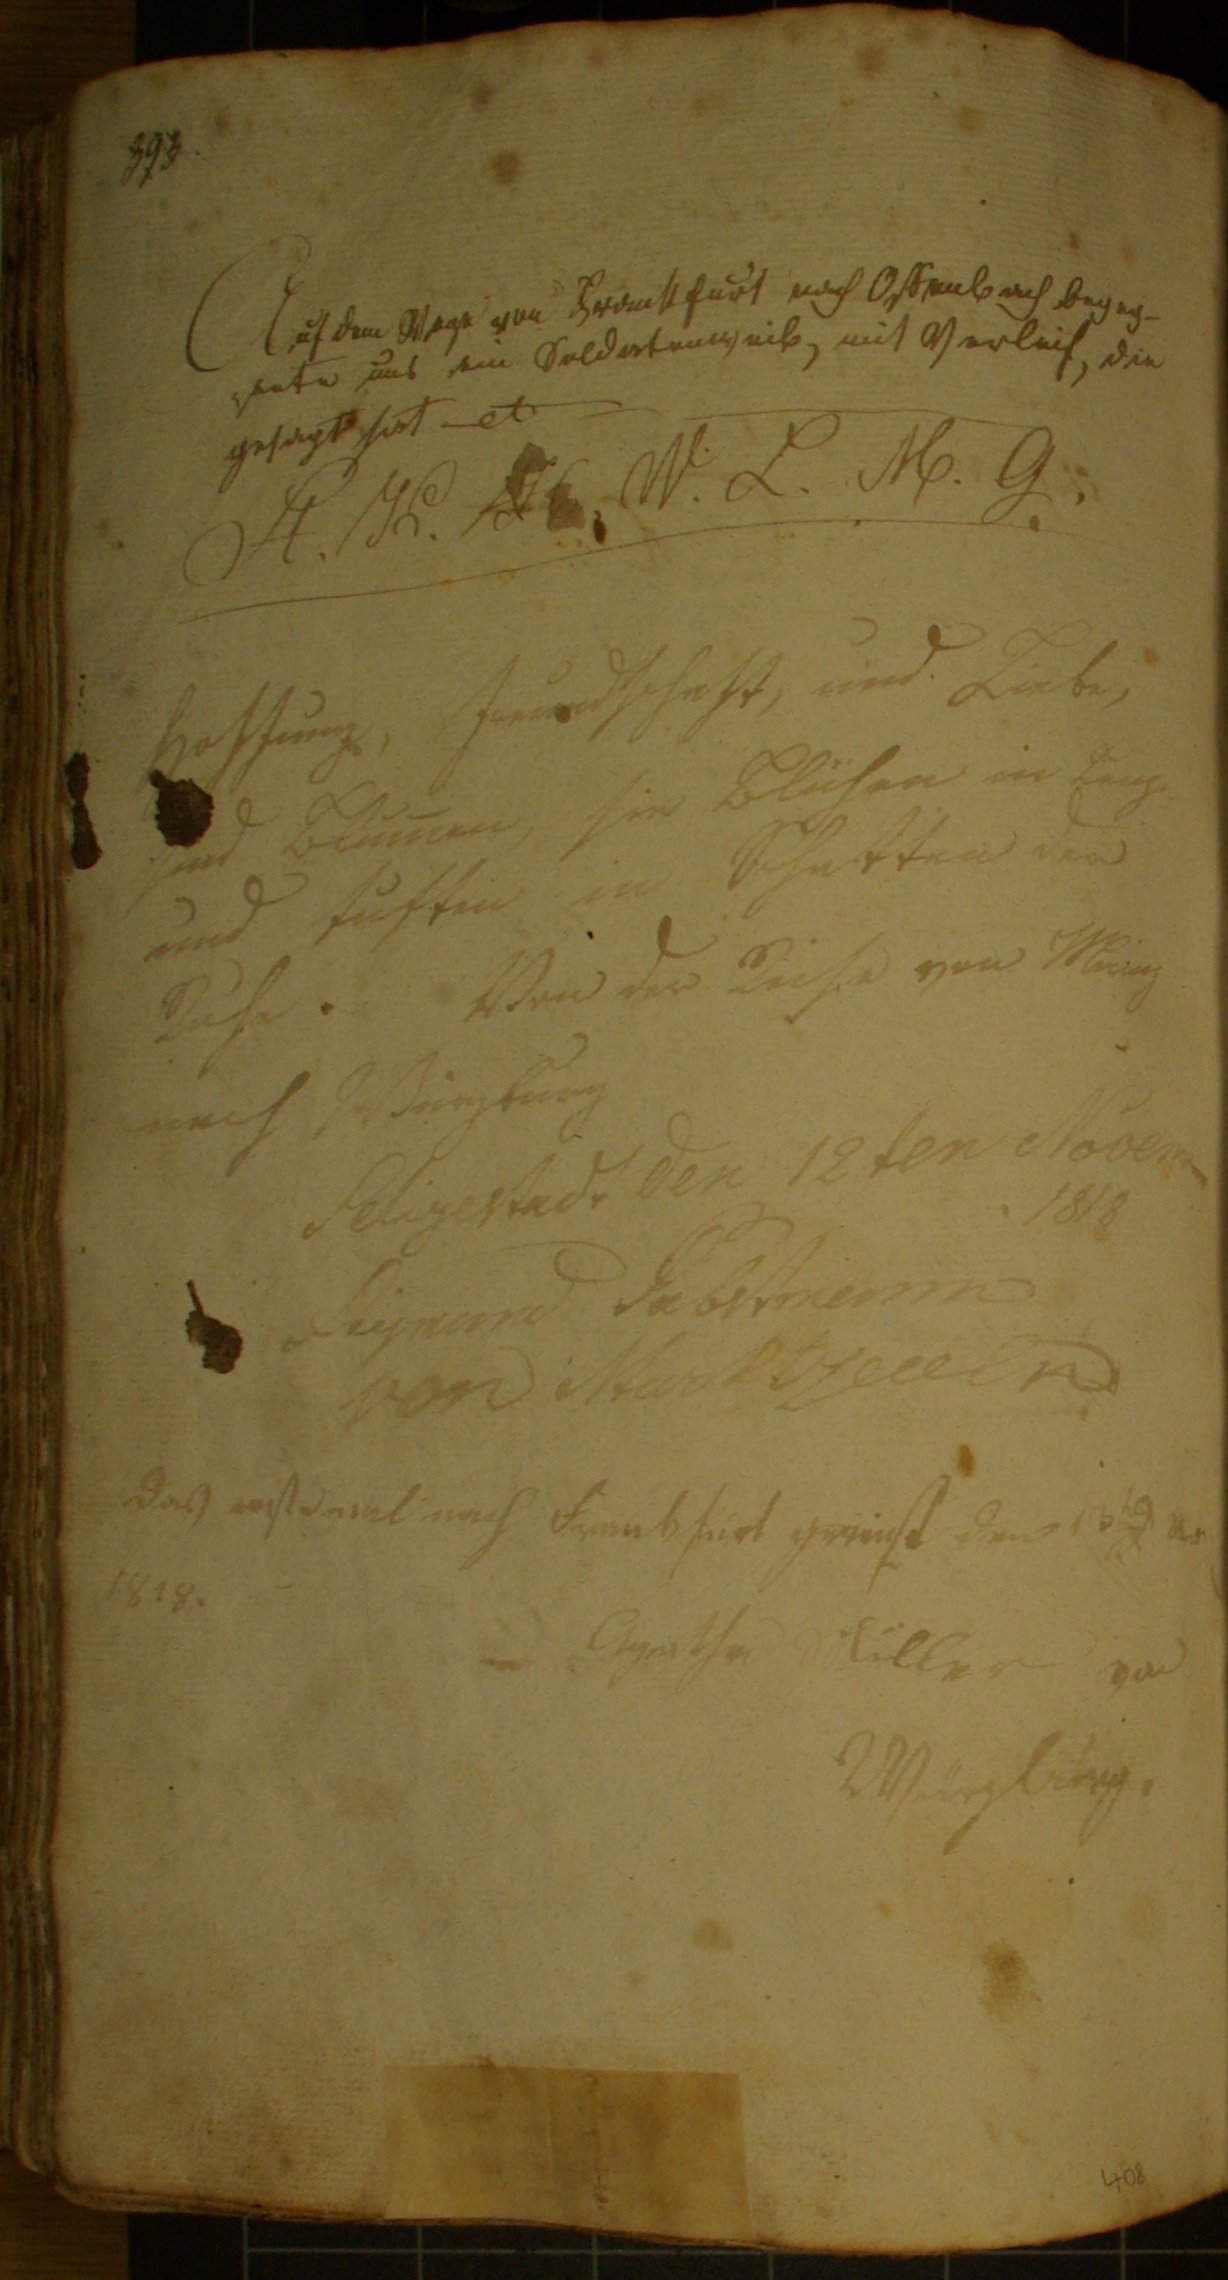 393.
Auf dem Wege von Frankfurt nach Offenbach begeg-
nete uns ein Soldatenweib, mit Verleif, die
gesagt hat et
A. K. W. L. M. G.
Hoffnung, Freundschaft, und Liebe,
sind Blumen, sie Blühen in Lenz
und duften in Schatten der
Ruhe. Von der Reise von Mainz
nach Würzburg
Seligestadt den 12ten Novem
1818
von
Das erstemal nach Frankfurt gereist den
1818.
Agatha Müller von
Würzburg.
408